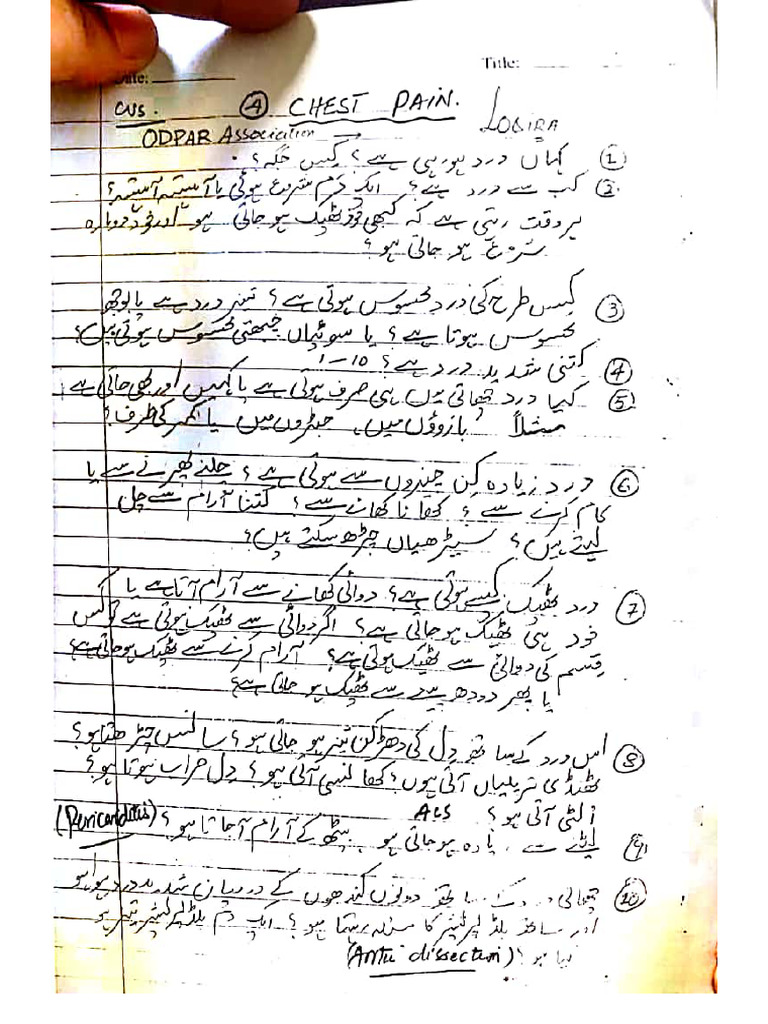 Title:
Date:
CVS. ④ CHEST PAIN.
ODPAR Association
① کہاں درد ہو رہی ہے؟ کس جگہ؟
② کب سے درد ہے؟ ایک دم شروع ہوئی یا آہستہ آہستہ؟
ہر وقت رہتی ہے کہ کبھی خود ٹھیک ہو جاتی ہو اور خود دوبارہ
شروع ہو جاتی ہو؟
③ کس طرح کی درد محسوس ہوتی ہے؟ تیز درد ہے یا بوجھ
محسوس ہوتا ہے؟ یا سوئیاں چبھتی محسوس ہوتی ہیں؟
④ کتنی شدید درد ہے؟ 1-10
⑤ کیا درد چھاتی میں ہی صرف ہوتی ہے یا کہیں اور بھی جاتی ہے
مثلاً بازوؤں میں، جبڑوں میں یا کمر کی طرف؟
⑥ درد زیادہ کن چیزوں سے ہوتی ہے؟ چلنے پھرنے سے یا
کام کرنے سے؟ کھانا کھانے سے؟ کتنا آرام سے چل
لیتے ہیں؟ سیڑھیاں چڑھ سکتے ہیں؟
⑦ درد ٹھیک کیسے ہوتی ہے؟ دوائی کھانے سے آرام آتا ہے یا
خود ہی ٹھیک ہو جاتی ہے؟ اگر دوائی سے ٹھیک ہوتی ہے تو کس
قسم کی دوائی سے ٹھیک ہوتی ہے؟ آرام کرنے سے ٹھیک ہو جاتی ہے؟
یا پھر دودھ پینے سے ٹھیک ہو جاتی ہے؟
⑧ اس درد کے ساتھ دل کی دھڑکن تیز ہو جاتی ہو؟ سانس چڑھتا ہو؟
ٹھنڈی تریلیاں آتی ہوں؟ کھانسی آتی ہو؟ دل خراب ہوتا ہو؟
الٹی آتی ہو؟ ACS
⑨ لیٹنے سے زیادہ ہو جاتی ہو بیٹھ کے آرام آ جاتا ہو؟ (Pericarditis)
⑩ چھاتی درد کے ساتھ دونوں کندھوں کے درمیان شدید درد ہوا ہو
اور ساتھ بلڈ پریشر کا مسئلہ رہتا ہو؟ ایک دم بلڈ پریشر تیز ہو
گیا ہو؟ (dissection)